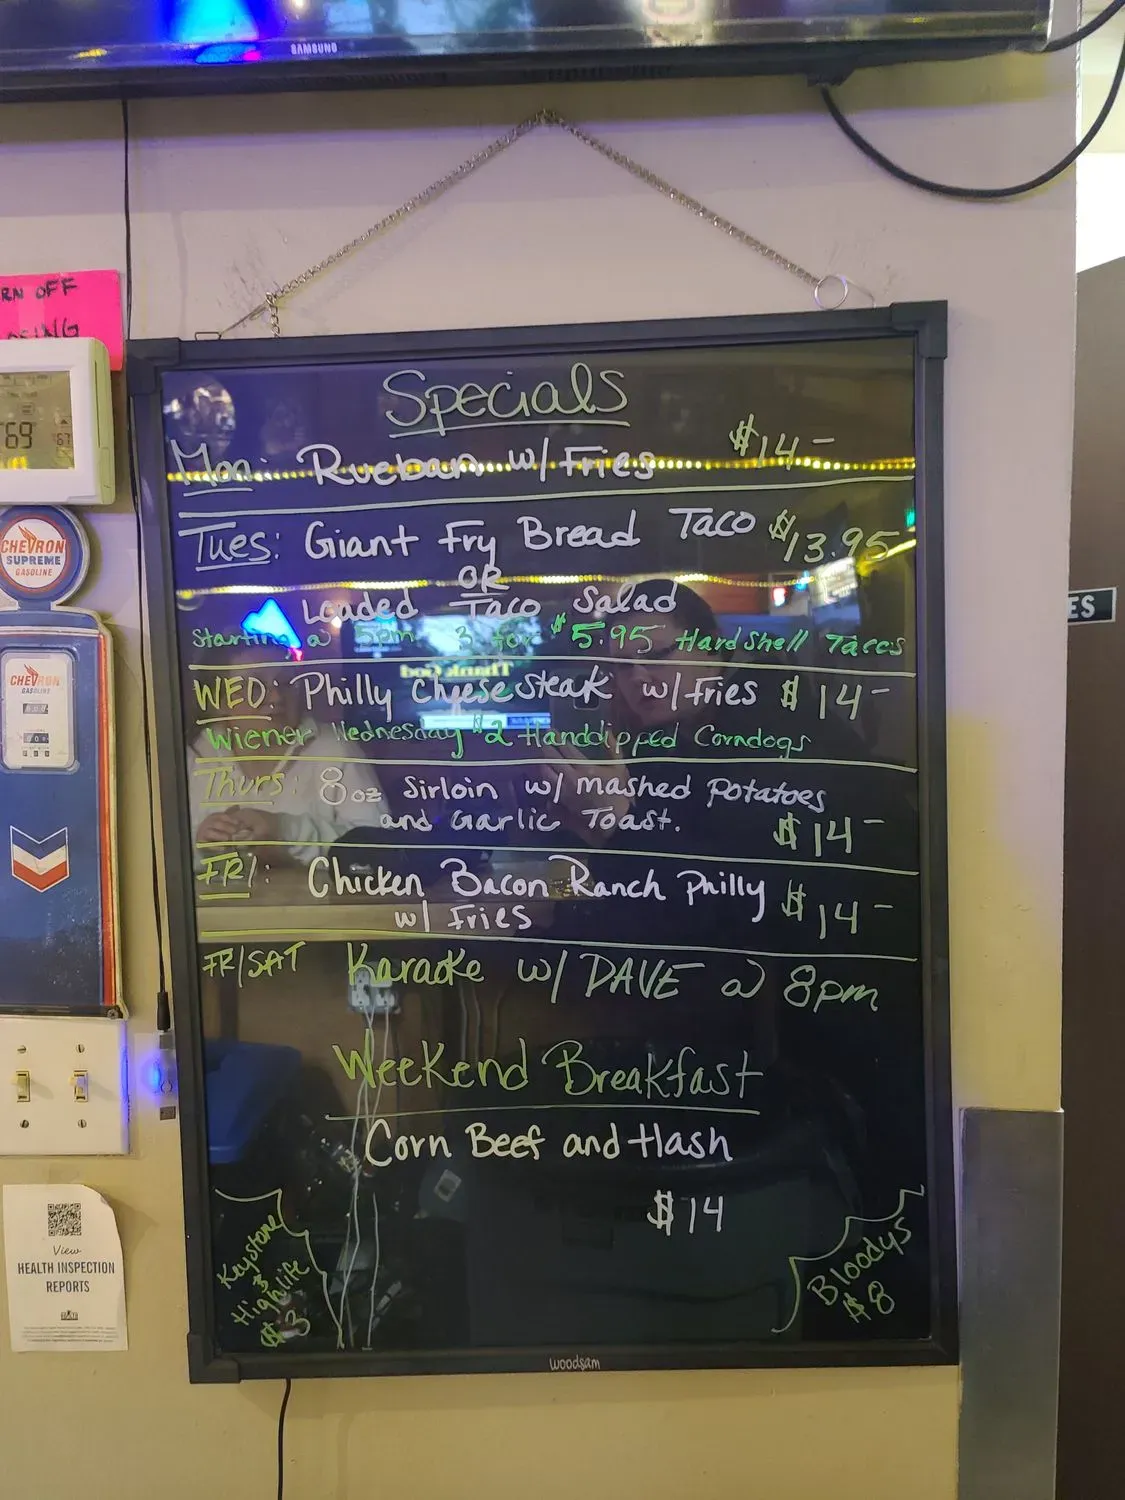 SAMSUNG
RN OFF
OSING
69
67
CHEVRON
SUPREME
GASOLINE
CHEVRON
GASOLINE
Specials
Mon: Rueban w/ Fries $14-
Tues: Giant Fry Bread Taco $13.95
OR
Loaded Taco Salad
Starting @ 5pm 3 for $5.95 Hard Shell Tacos
WED: Philly Cheese Steak w/ Fries $14-
Wiener Wednesday $2 Handdipped Corndogs
Thurs: 8oz Sirloin w/ mashed Potatoes
and Garlic Toast. $14-
FRI: Chicken Bacon Ranch Philly $14-
w/ Fries
FRI/SAT Karaoke w/ DAVE @ 8pm
Weekend Breakfast
Corn Beef and Hash
$14
Keystone
&
Highlife
$3
Bloodys
$8
woodsam
View
HEALTH INSPECTION
REPORTS
ES
Thank God